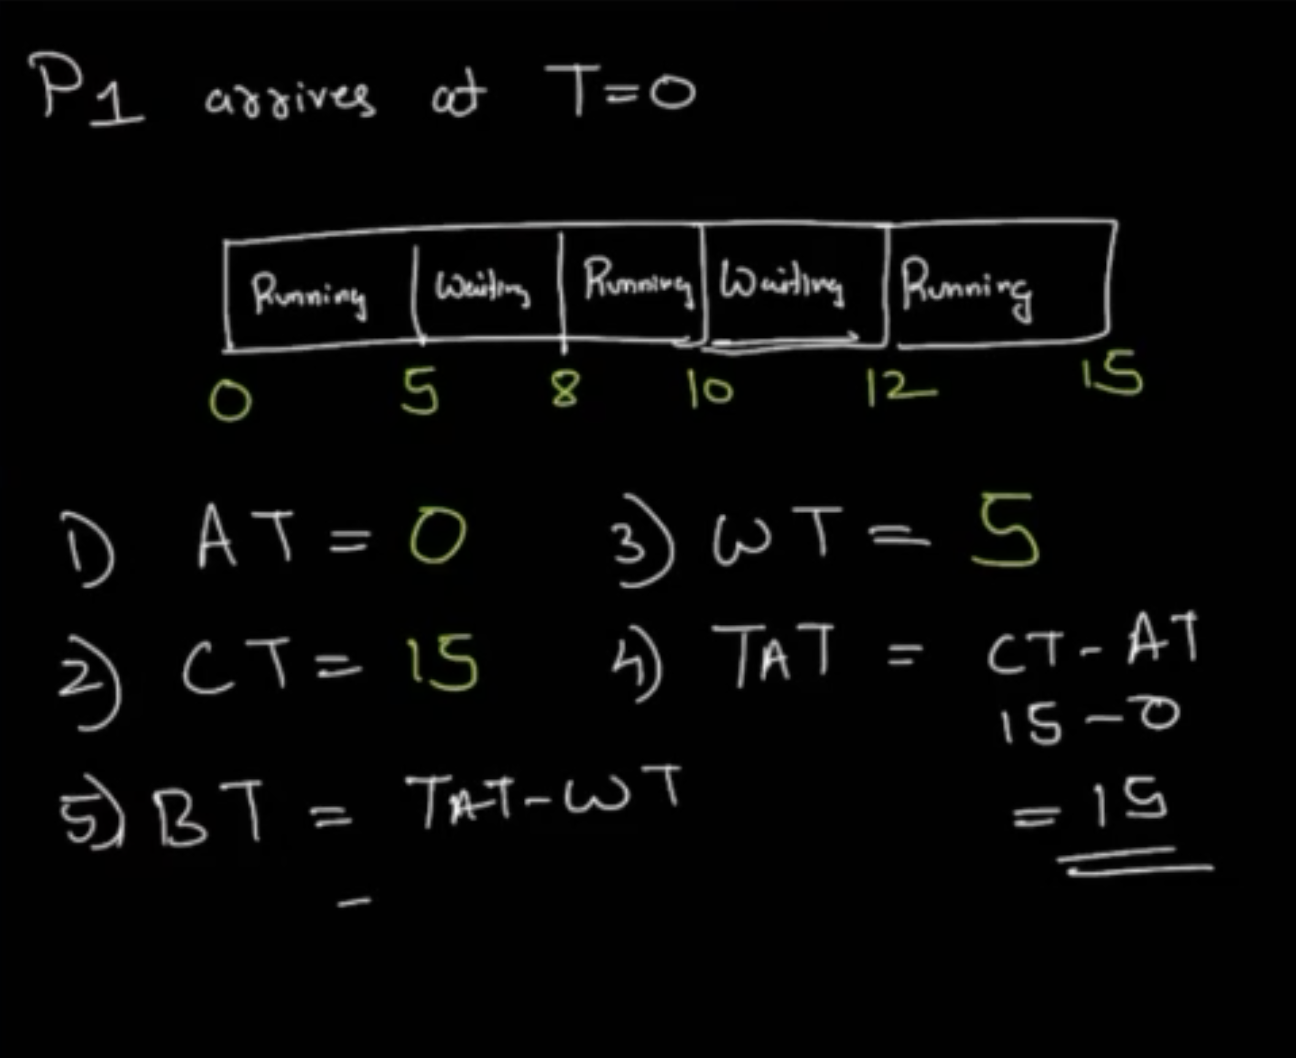 P1 arrives at T=0
Running Waiting Running Waiting Running
0 5 8 10 12 15
1) AT = 0
3) WT = 5
2) CT = 15
4) TAT = CT - AT
15 - 0
= 15
5) BT = TAT - WT